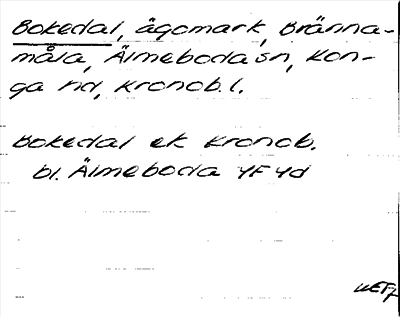 Bokedal, ägomark, Bränna-
måla, Älmeboda sn, Kon-
ga hd, Kronob. l.
Bokedal ek Kronob.
bl. Älmeboda 4F4d